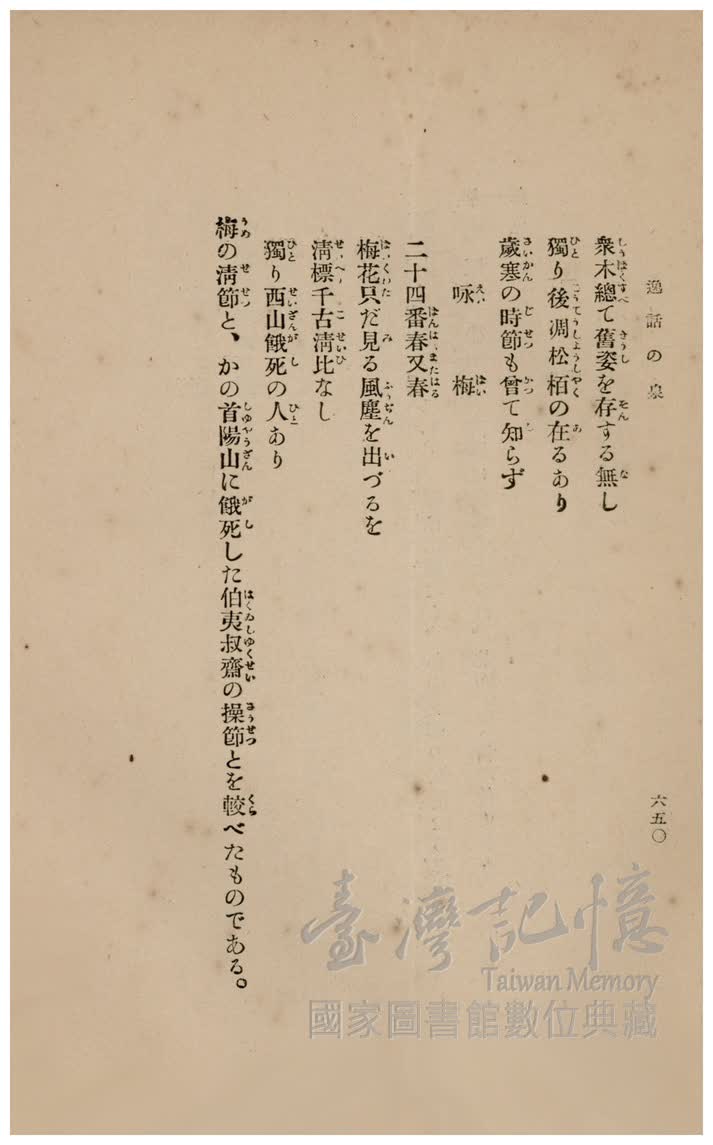 逸話の泉
六五〇
衆木總て舊姿を存する無し
獨り後凋松栢の在るあり
歲寒の時節も曾て知らず
咏梅
二十四番春又春
梅花只だ見る風塵を出づるを
淸標千古淸比なし
獨り西山餓死の人あり
梅の淸節と、かの首陽山に餓死した伯夷叔齋の操節とを較べたものである。
臺灣記憶
Taiwan Memory
國家圖書館數位典藏